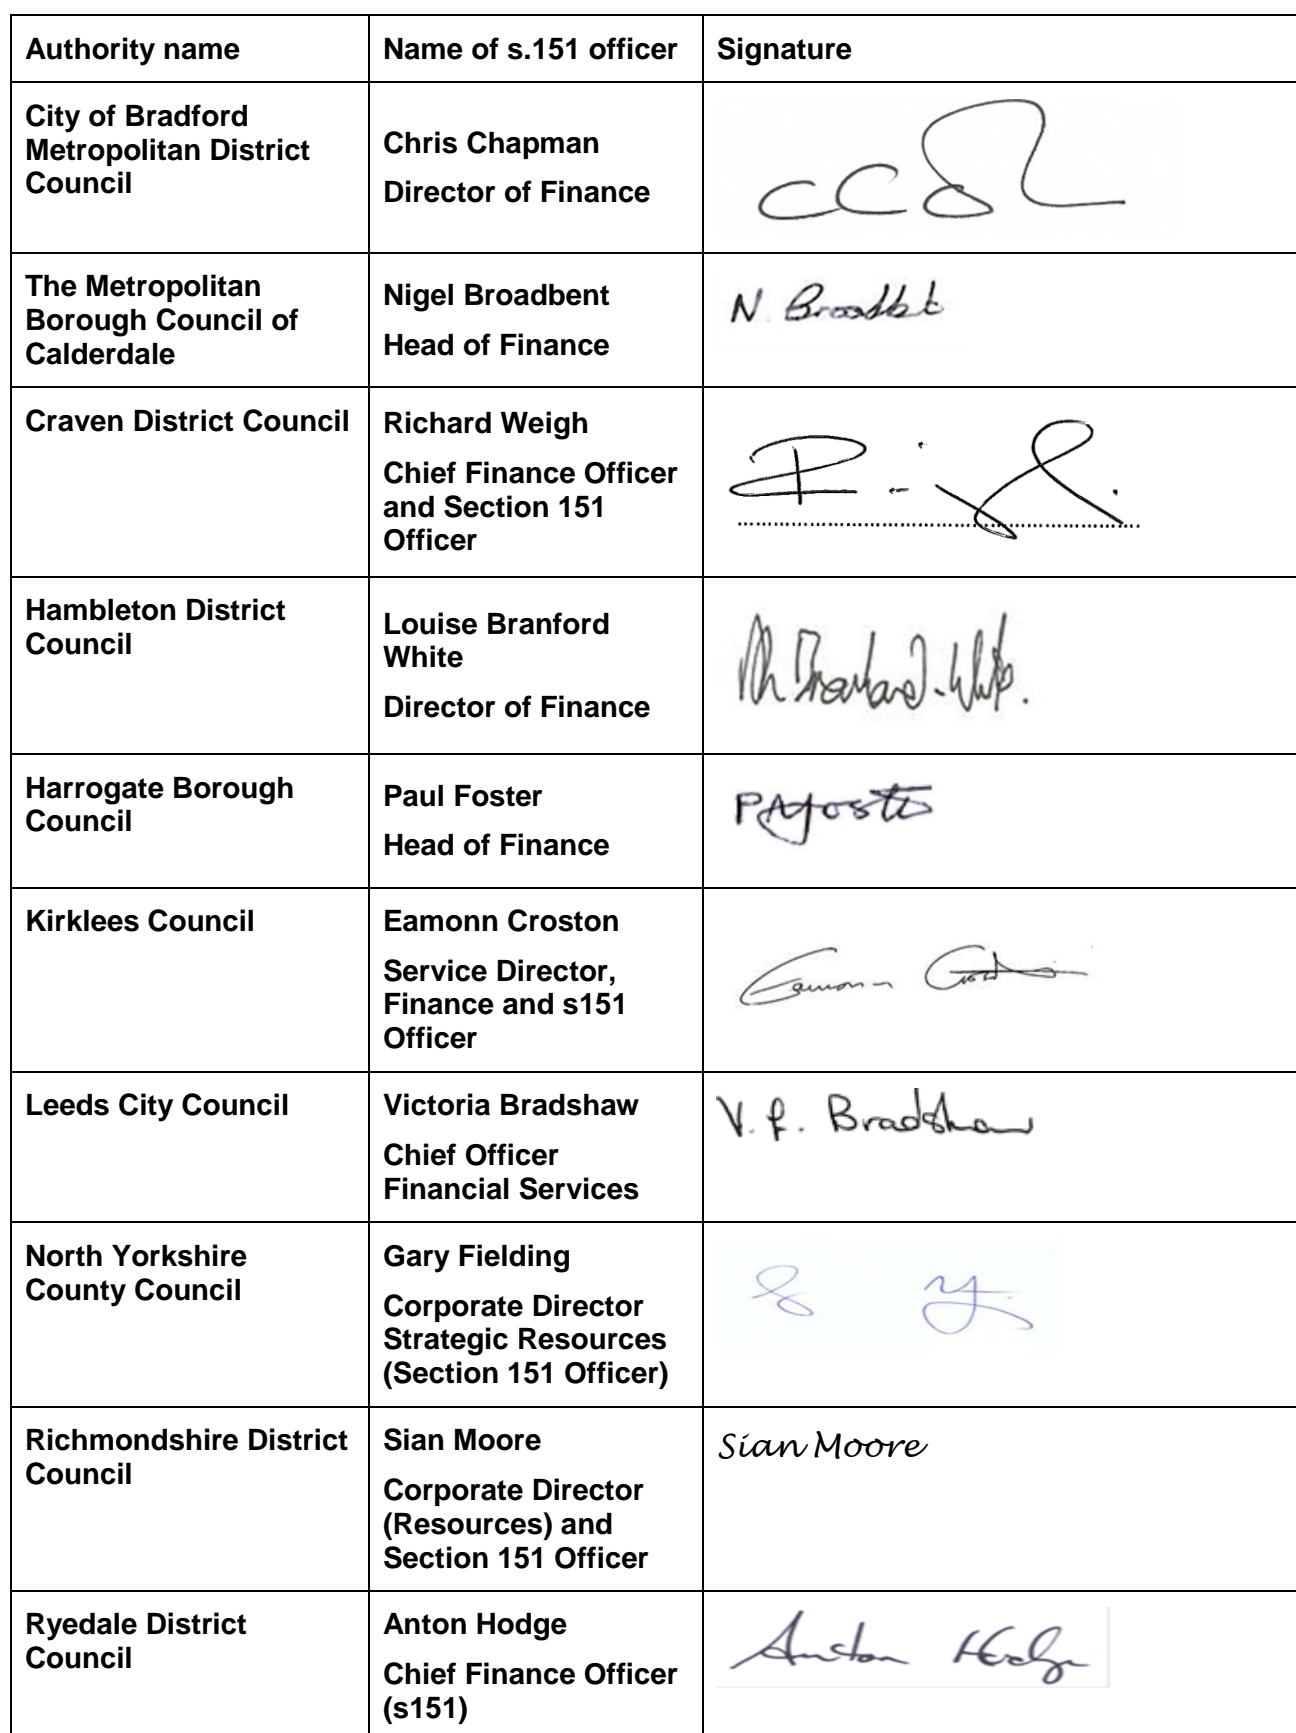 Authority name
Name of s.151 officer
Signature
City of Bradford
Metropolitan District
Council
Chris Chapman
Director of Finance
The Metropolitan
Borough Council of
Calderdale
Nigel Broadbent
Head of Finance
N. Broadbt
Craven District Council
Richard Weigh
Chief Finance Officer
and Section 151
Officer
Hambleton District
Council
Louise Branford
White
Director of Finance
Branford-White.
Harrogate Borough
Council
Paul Foster
Head of Finance
PAFoster
Kirklees Council
Eamonn Croston
Service Director,
Finance and s151
Officer
Eamonn
Leeds City Council
Victoria Bradshaw
Chief Officer
Financial Services
Bradshaw
North Yorkshire
County Council
Gary Fielding
Corporate Director
Strategic Resources
(Section 151 Officer)
Richmondshire District
Council
Sian Moore
Corporate Director
(Resources) and
Section 151 Officer
Sian Moore
Ryedale District
Council
Anton Hodge
Chief Finance Officer
(s151)
Anton Hodge